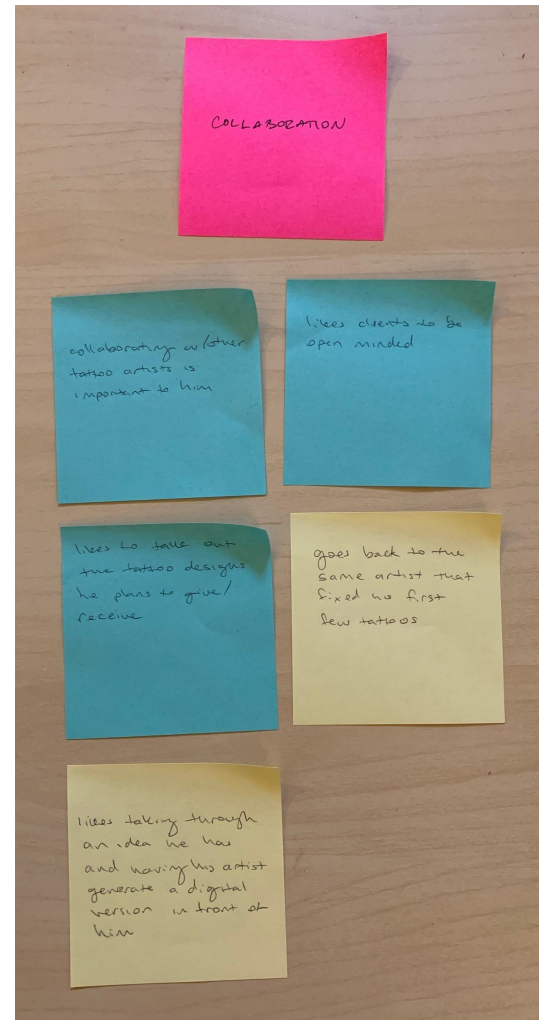 COLLABORATION
collaborating w/other
tattoo artists is
important to him
likes clients to be
open minded
likes to talk out
the tattoo designs
he plans to give/
receive
goes back to the
same artist that
fixed his first
few tattoos
likes talking through
an idea he has
and having his artist
generate a digital
version in front of
him